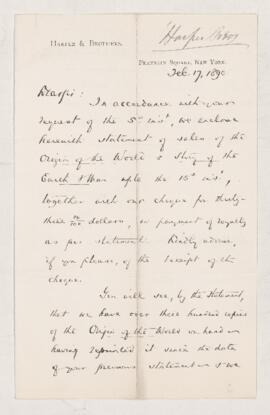 Harper Bros
HARPER & BROTHERS.
FRANKLIN SQUARE, NEW YORK.
Feb. 17, 1890
Dear Sir:
In accordance with your
request of the 5th inst., we enclose
herewith statement of sales of the
Origin of the World & Story of the
Earth & Man up to the 15th inst.,
together with our cheque for thirty-
three dollars, in payment of royalty
as per statement. Kindly advise,
if you please, of the receipt of the
cheque.
You will see, by the statement,
that we have over three hundred copies
of the Origin of the World on hand
having reprinted it since the date
of your previous statement & we